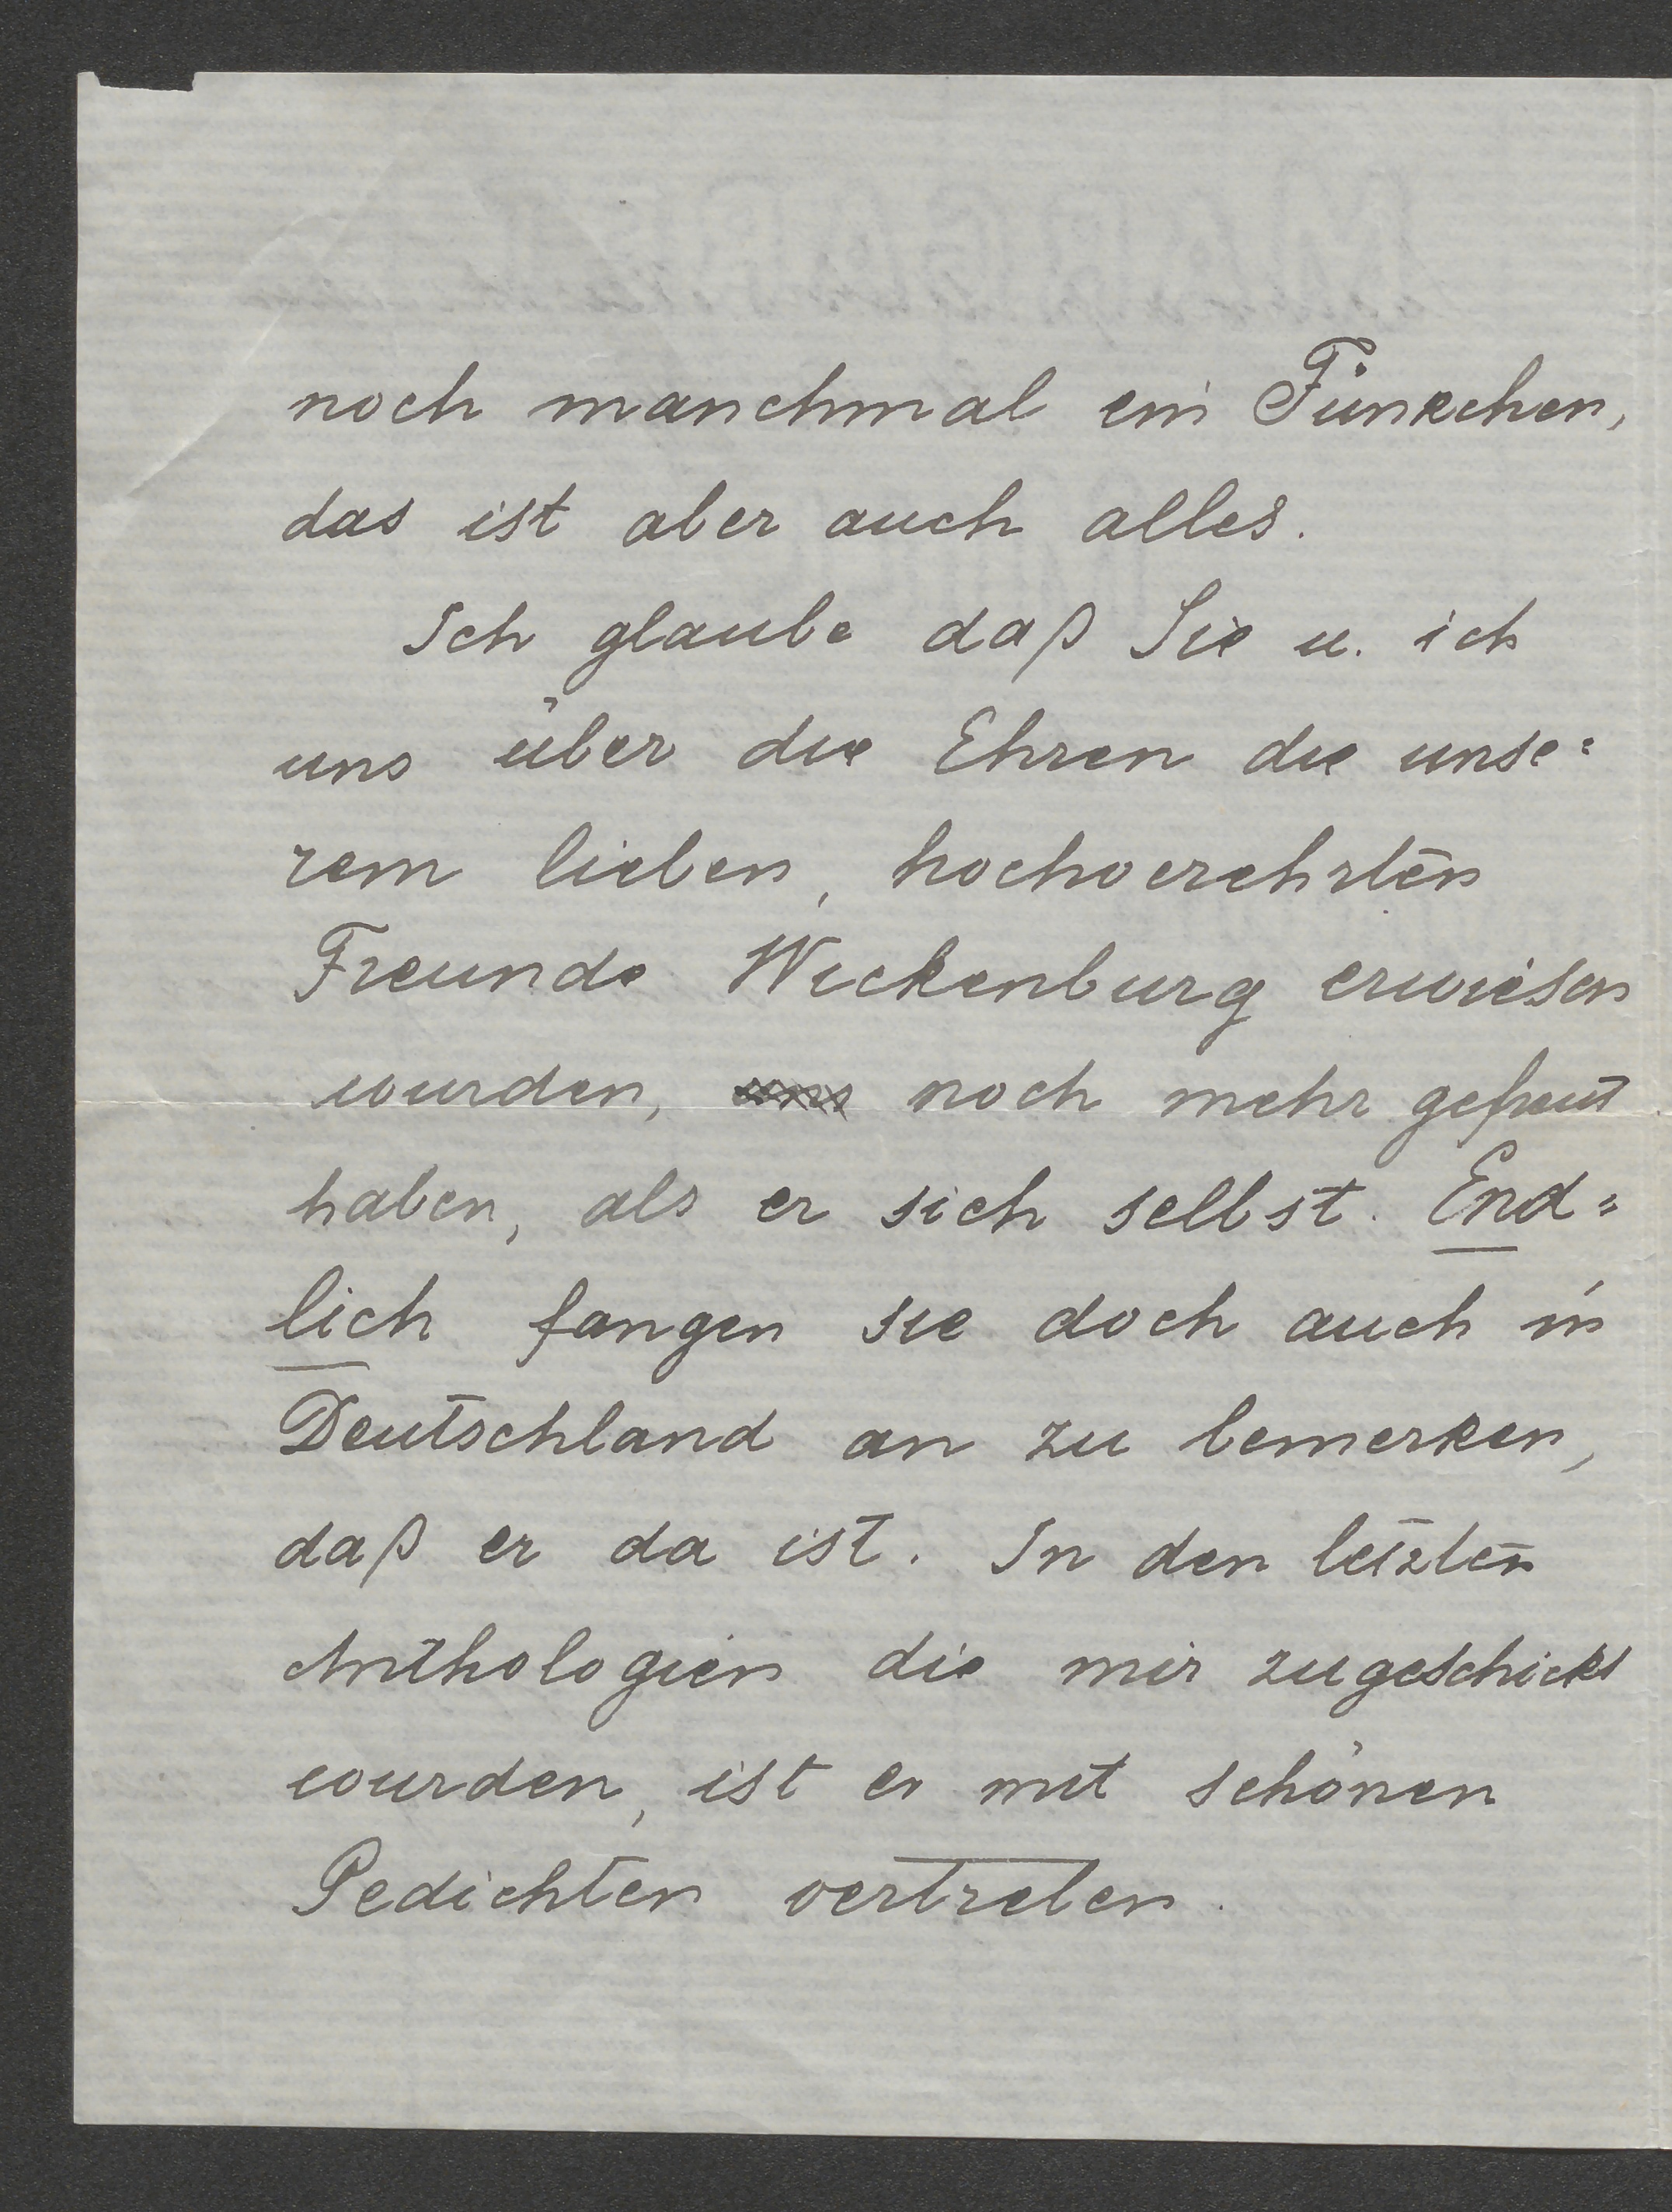 noch manchmal ein Fünkchen,
das ist aber auch alles.
Ich glaube daß Sie u. ich
uns über die Ehren die unse=
rem lieben, hochverehrten
Freunde Wickenburg erwiesen
wurden, uns noch mehr gefreut
haben, als er sich selbst. End=
lich fangen sie doch auch in
Deutschland an zu bemerken,
daß er da ist. In den letzten
Anthologien die mir zugeschickt
wurden, ist er mit schönen
Gedichten vertreten.